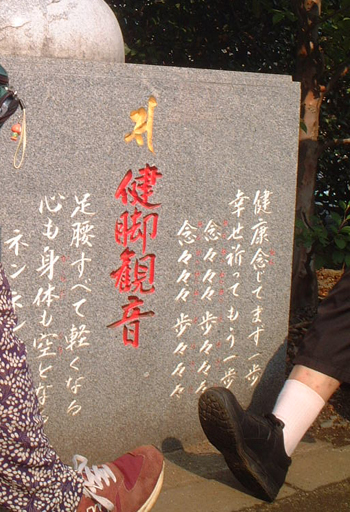 健康念じてまず一歩
幸せ祈ってもう一歩
念々々々歩々々々
念々々々歩々々々
健脚観音
足腰すべて軽くなる
心も身体も空とな
ネンネン